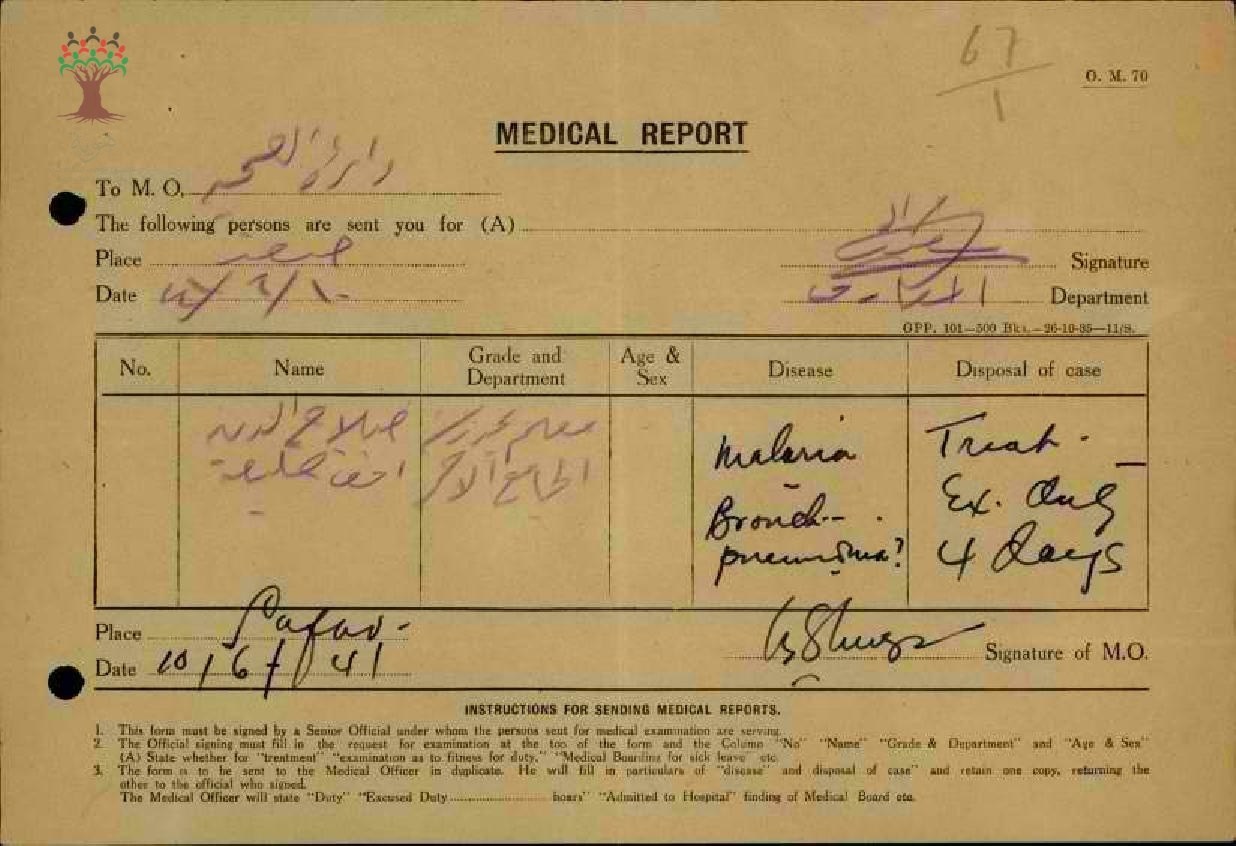 67
1
O. M. 70
MEDICAL REPORT
To M. O. دائرة الصحة
The following persons are sent you for (A)
Place صفد
Signature
Date ١٠/٦/٤١
المعارف Department
GPP. 101—500 Bks.—26-10-35—11/S.
No. Name Grade and Department Age & Sex Disease Disposal of case
صلاح الدين معلم مدرسة Malaria Treat.
الجامع الاحمر Ex. Duty
Bronch-
pneumonia? 4 days
Place Safad.
Date 10/6/41 Signature of M.O.
INSTRUCTIONS FOR SENDING MEDICAL REPORTS.
1. This form must be signed by a Senior Official under whom the persons sent for medical examination are serving.
2. The Official signing must fill in the request for examination at the top of the form and the Column "No" "Name" "Grade & Department" and "Age & Sex"
(A) State whether for "treatment" "examination as to fitness for duty," "Medical Boarding for sick leave" etc.
3. The form is to be sent to the Medical Officer in duplicate. He will fill in particulars of "disease" and disposal of case" and retain one copy, returning the
other to the official who signed.
The Medical Officer will state "Duty" "Excused Duty.................... hours" "Admitted to Hospital" finding of Medical Board etc.